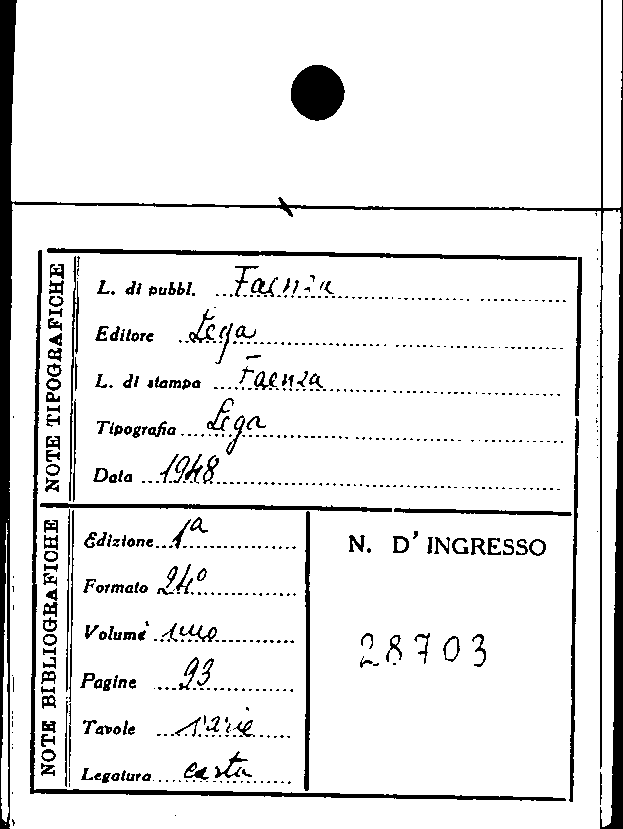 NOTE TIPOGRAFICHE
L. di pubbl. Faenza
Editore Lega
L. di stampa Faenza
Tipografia Lega
Data 1948
NOTE BIBLIOGRAFICHE
Edizione 1ª
Formato 24º
Volume uno
Pagine 93
Tavole varie
Legatura carta
N. D'INGRESSO
28703